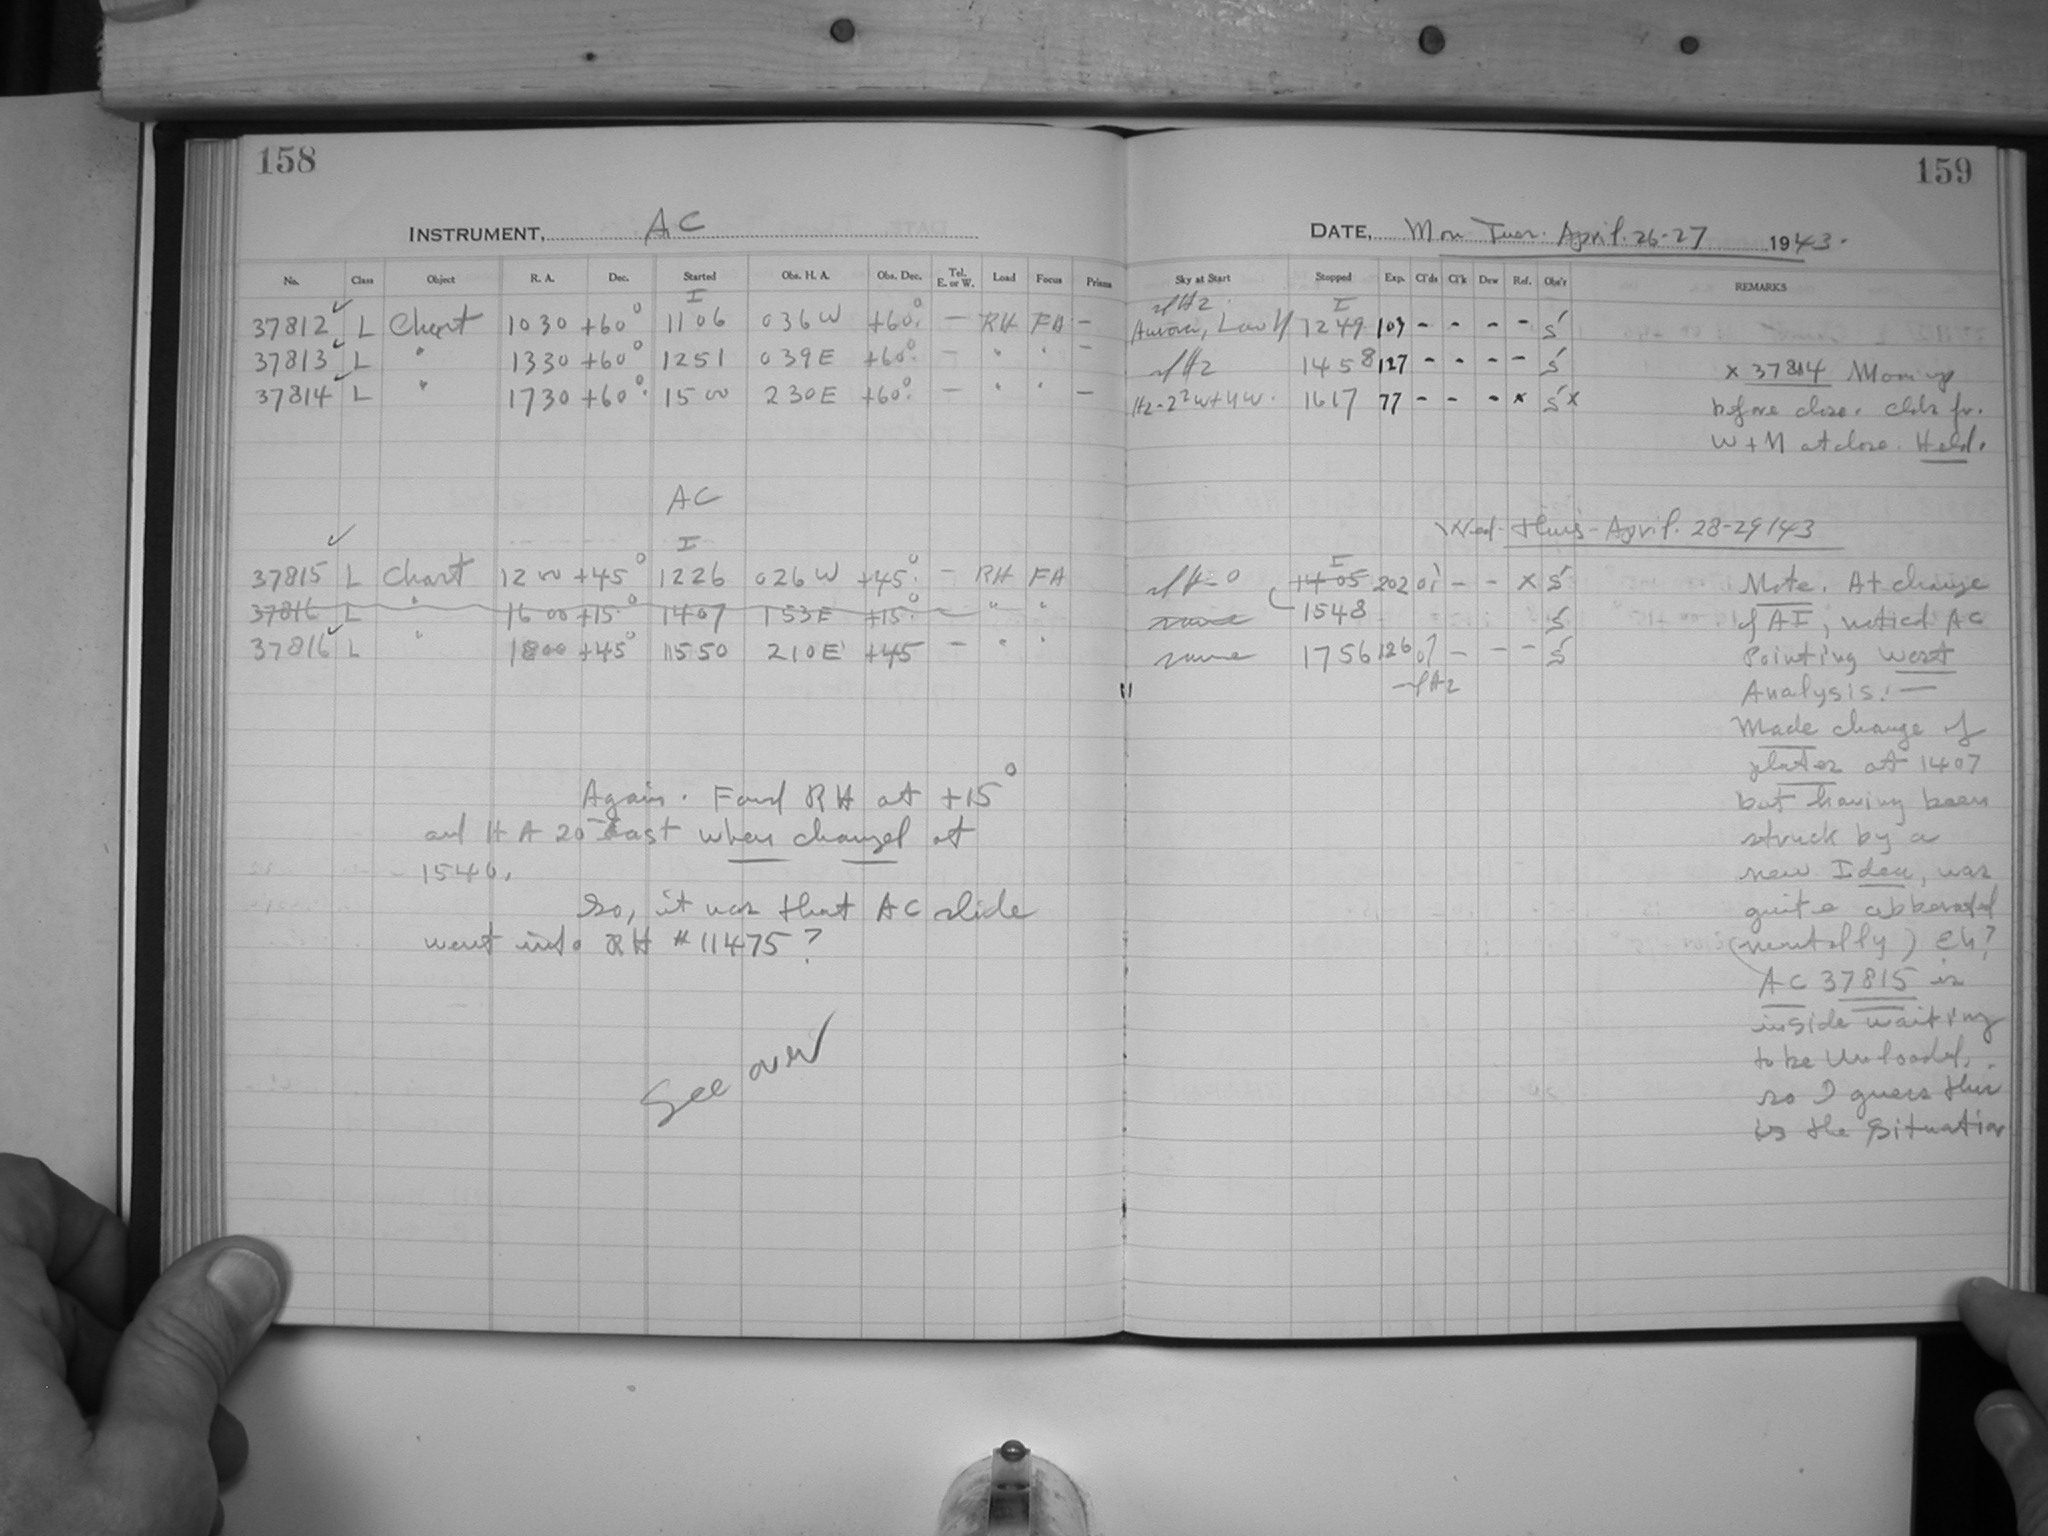 158
159
INSTRUMENT, AC
DATE, Mon Tues. April. 26-27 1943.
No. Class Object R. A. Dec. Started Obs. H. A. Obs. Dec. Tel. E. or W. Load Focus Prisms Sky at Start Stopped Exp. Cl'ds Cl'k Dew Ref. Obs'r REMARKS
37812 ✓ L Chart 1030 +60° I 1106 036 W +60° - RH FA - Hz. Aurora, Low I 1249 103 - - - - S
37813 ✓ L " 1330 +60° 1251 039 E +60° - " " - Hz 1458 127 - - - - S
37814 ✓ L " 1730 +60° 1500 230 E +60° - " " - 1617 77 - - - x S x
x 37814
before close. clds fr.
W + N at close. Held.
AC
Wed-Thurs-April. 28-29/43
I
37815 ✓ L Chart 1200 +45° 1226 026 W +45° - RH FA I 1405 202 - - x S
37816 L " 1600 +15° 1407 153 E +15° - " " same 1548 S
37816 ✓ L " 1800 +45° 1550 210 E +45 - " " same 1756 126 - - - S
Note. At change
of AI, noticed AC
Pointing West
Analysis: —
Made change of
plates at 1407
but having been
struck by a
new Idea, was
quite
(mentally) Eh?
AC 37815 is
inside waiting
to be Unloaded,
so I guess this
is the Situation
Again. Found RH at +15°
and HA 20 East when changed at
1540.
So, it was that AC slide
went into RH # 11475?
See over